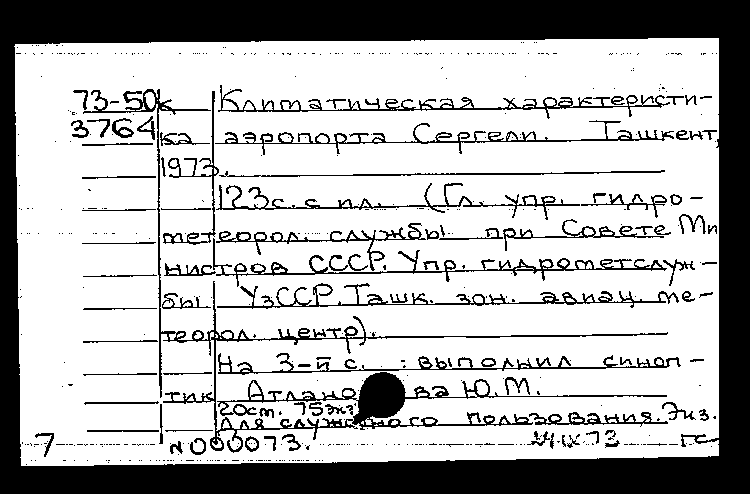 73-50к Климатическая характеристи-
3764 ка аэропорта Сергели. Ташкент,
1973.
123с. с ил. (Гл. упр. гидро-
метеорол. службы при Совете Ми
нистров СССР. Упр. гидрометслуж-
бы УзССР. Ташк. зон. авиац. ме-
теорол. центр).
На 3-й с. : выполнил синоп-
тик Атлано ва Ю.М.
20см. 75экз
Для служебного пользования. Экз.
7 №000073. IX 73